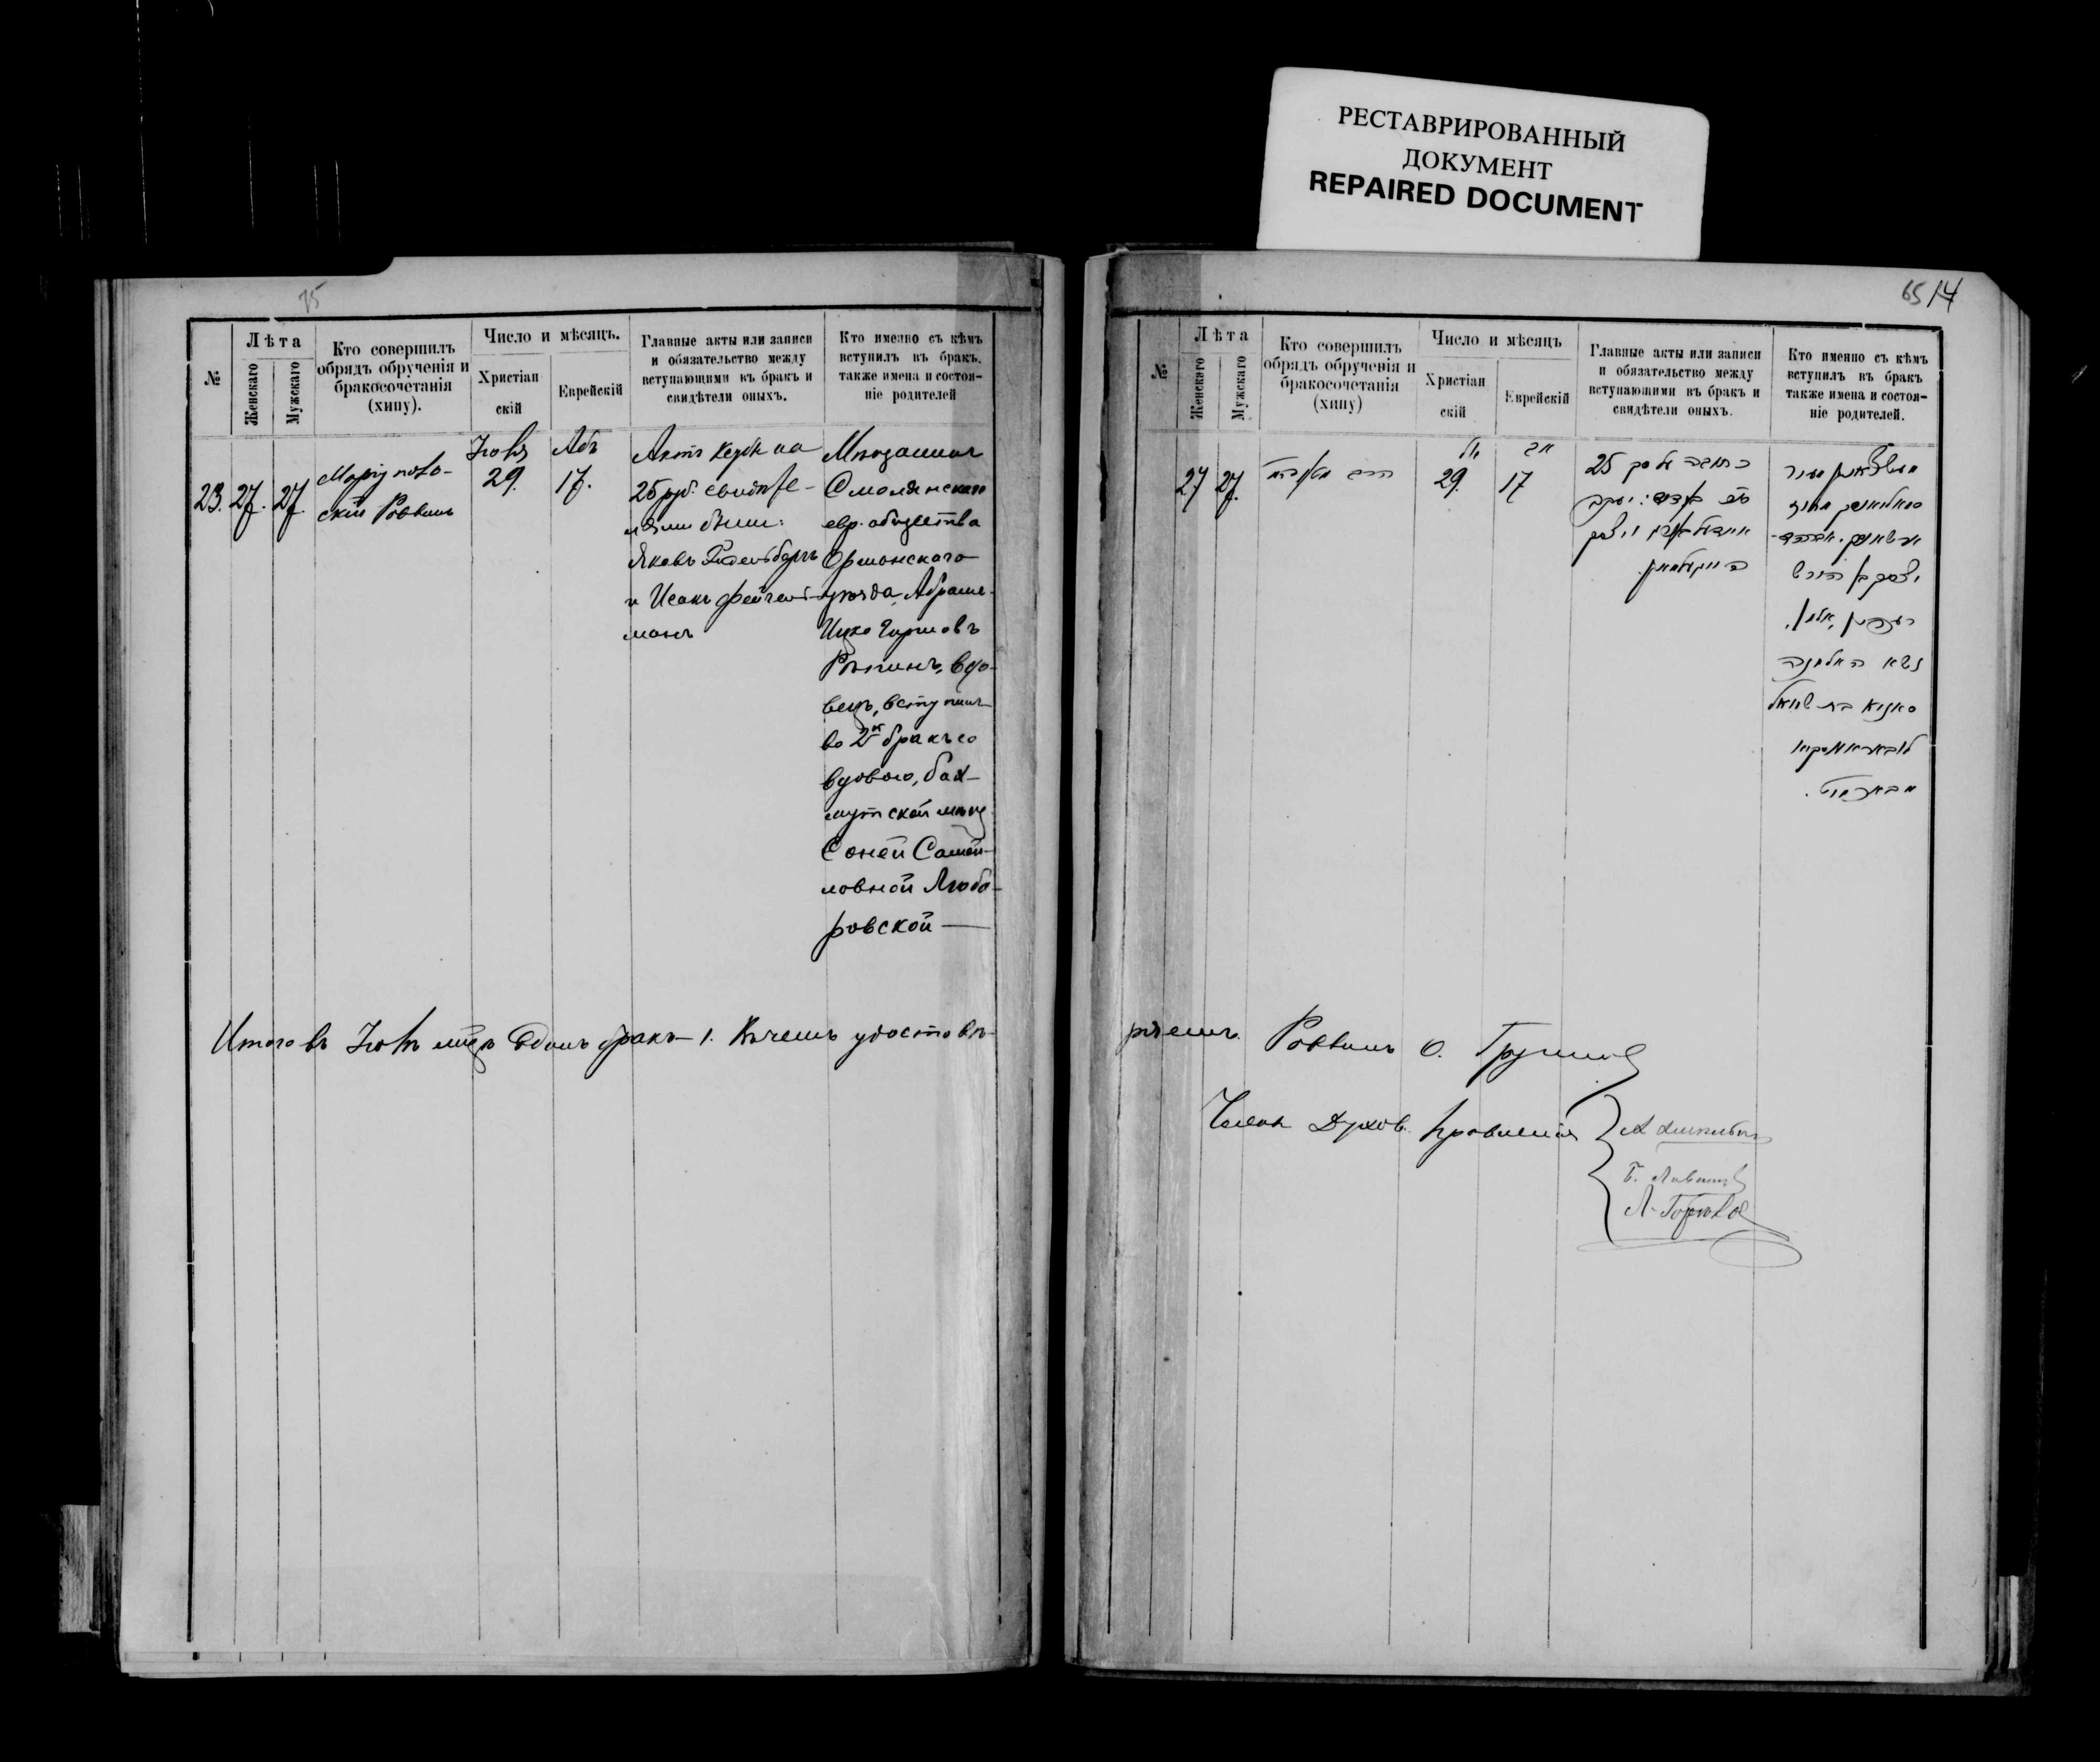 РЕСТАВРИРОВАННЫЙ
ДОКУМЕНТ
REPAIRED DOCUMENT
75
№
Лѣта
Женскаго
Мужскаго
Кто совершилъ
обрядъ обрученія и
бракосочетанія
(хипу).
Число и мѣсяцъ.
Христіан
скій
Еврейскій
Главные акты или записи
и обязательство между
вступающими въ бракъ и
свидѣтели оныхъ.
Кто именно съ кѣмъ
вступилъ въ бракъ,
также имена и состоя-
ніе родителей
23. 27. 27.
Маріуполь-
скій Раввинъ
Іюля
29.
Абъ
17.
Актъ на
25 руб. свидѣте-
лями были:
Яковъ
и Исакъ Фейгель-
манъ
Мѣщанинъ
Смолянскаго
евр. общества
Оршанскаго
уѣзда, Абрамъ-
Ицко Гиршовъ
вдо-
вецъ, вступилъ
во 2й бракъ со
вдовою, бах-
мутской мѣщ
Соней Самой-
ловной Любо-
ровской
Итого въ Іюлѣ мцѣ одинъ бракъ 1. Въ чемъ удостовѣ-
65 14
№
Лѣта
Женскаго
Мужскаго
Кто совершилъ
обрядъ обрученія и
бракосочетанія
(хипу)
Число и мѣсяцъ
Христіан
скій
Еврейскій
Главные акты или записи
и обязательство между
вступающими въ бракъ и
свидѣтели оныхъ.
Кто именно съ кѣмъ
вступилъ въ бракъ
также имена и состоя-
ніе родителей.
27 27.
הרב
יול
29.
אב
17
כתובה על סך 25
יעקב
יצחק בן הירש
נשא האלמנה
סאניא בת שמואל
ряемъ. Раввинъ О.
Члены Духов. Правленія